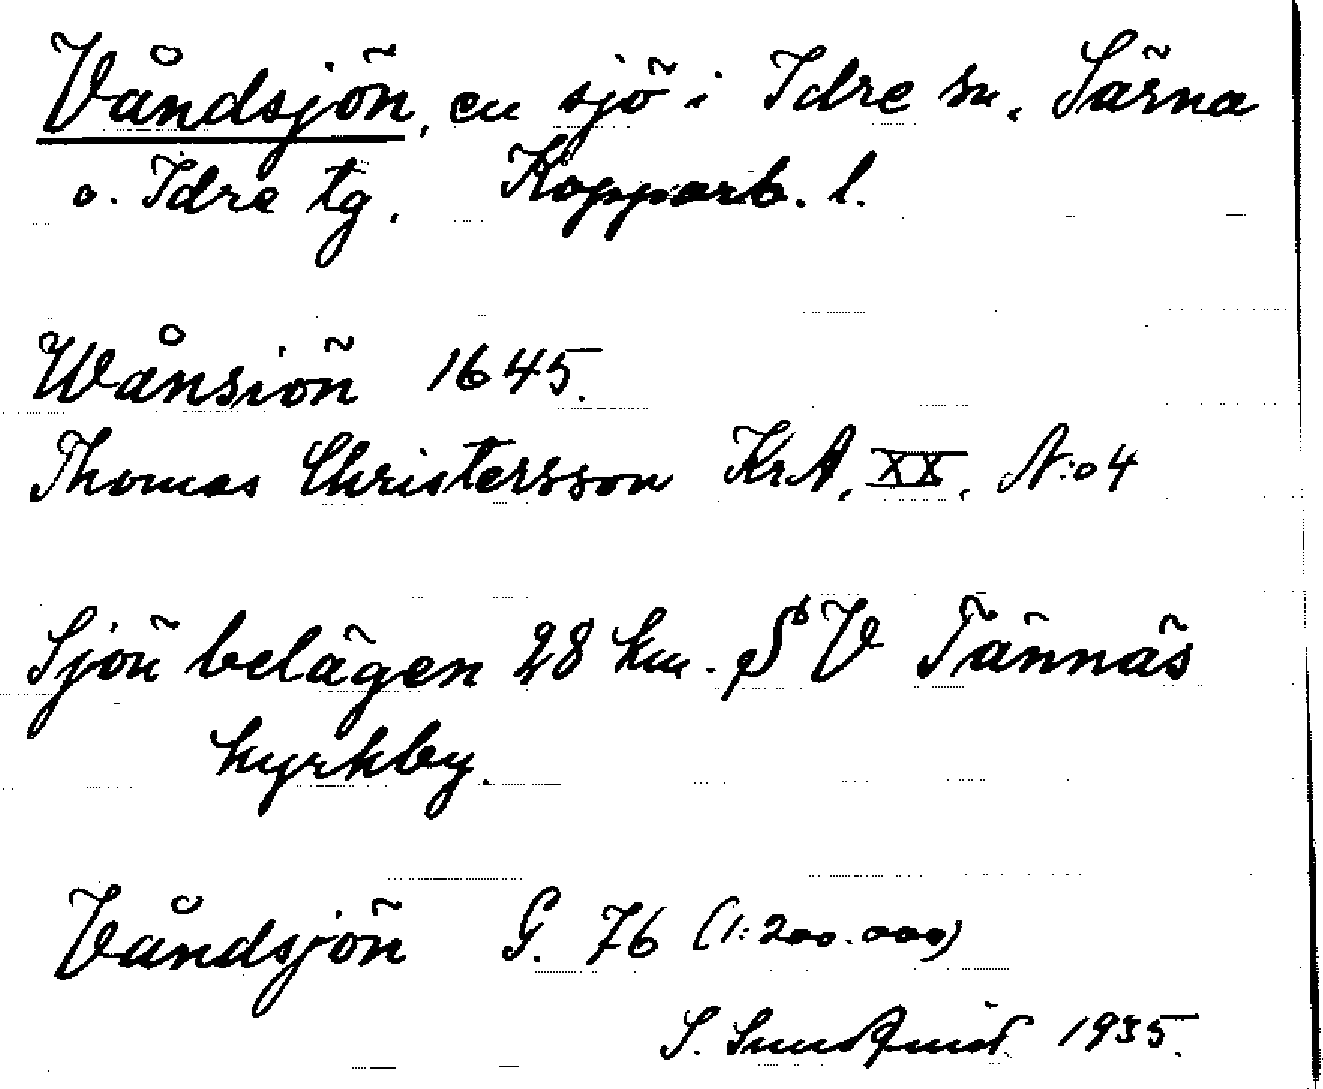 Våndsjön, en sjö i Idre sn. Särna
o. Idre tg. Kopparb. l.
Wånsiön 1645.
Thomas Christersson KrA. XX. N:o 4
Sjön belägen 28 km. SV Tännäs
kyrkby.
Våndsjön G. 76 (1:200.000)
S. Sundquist 1935.